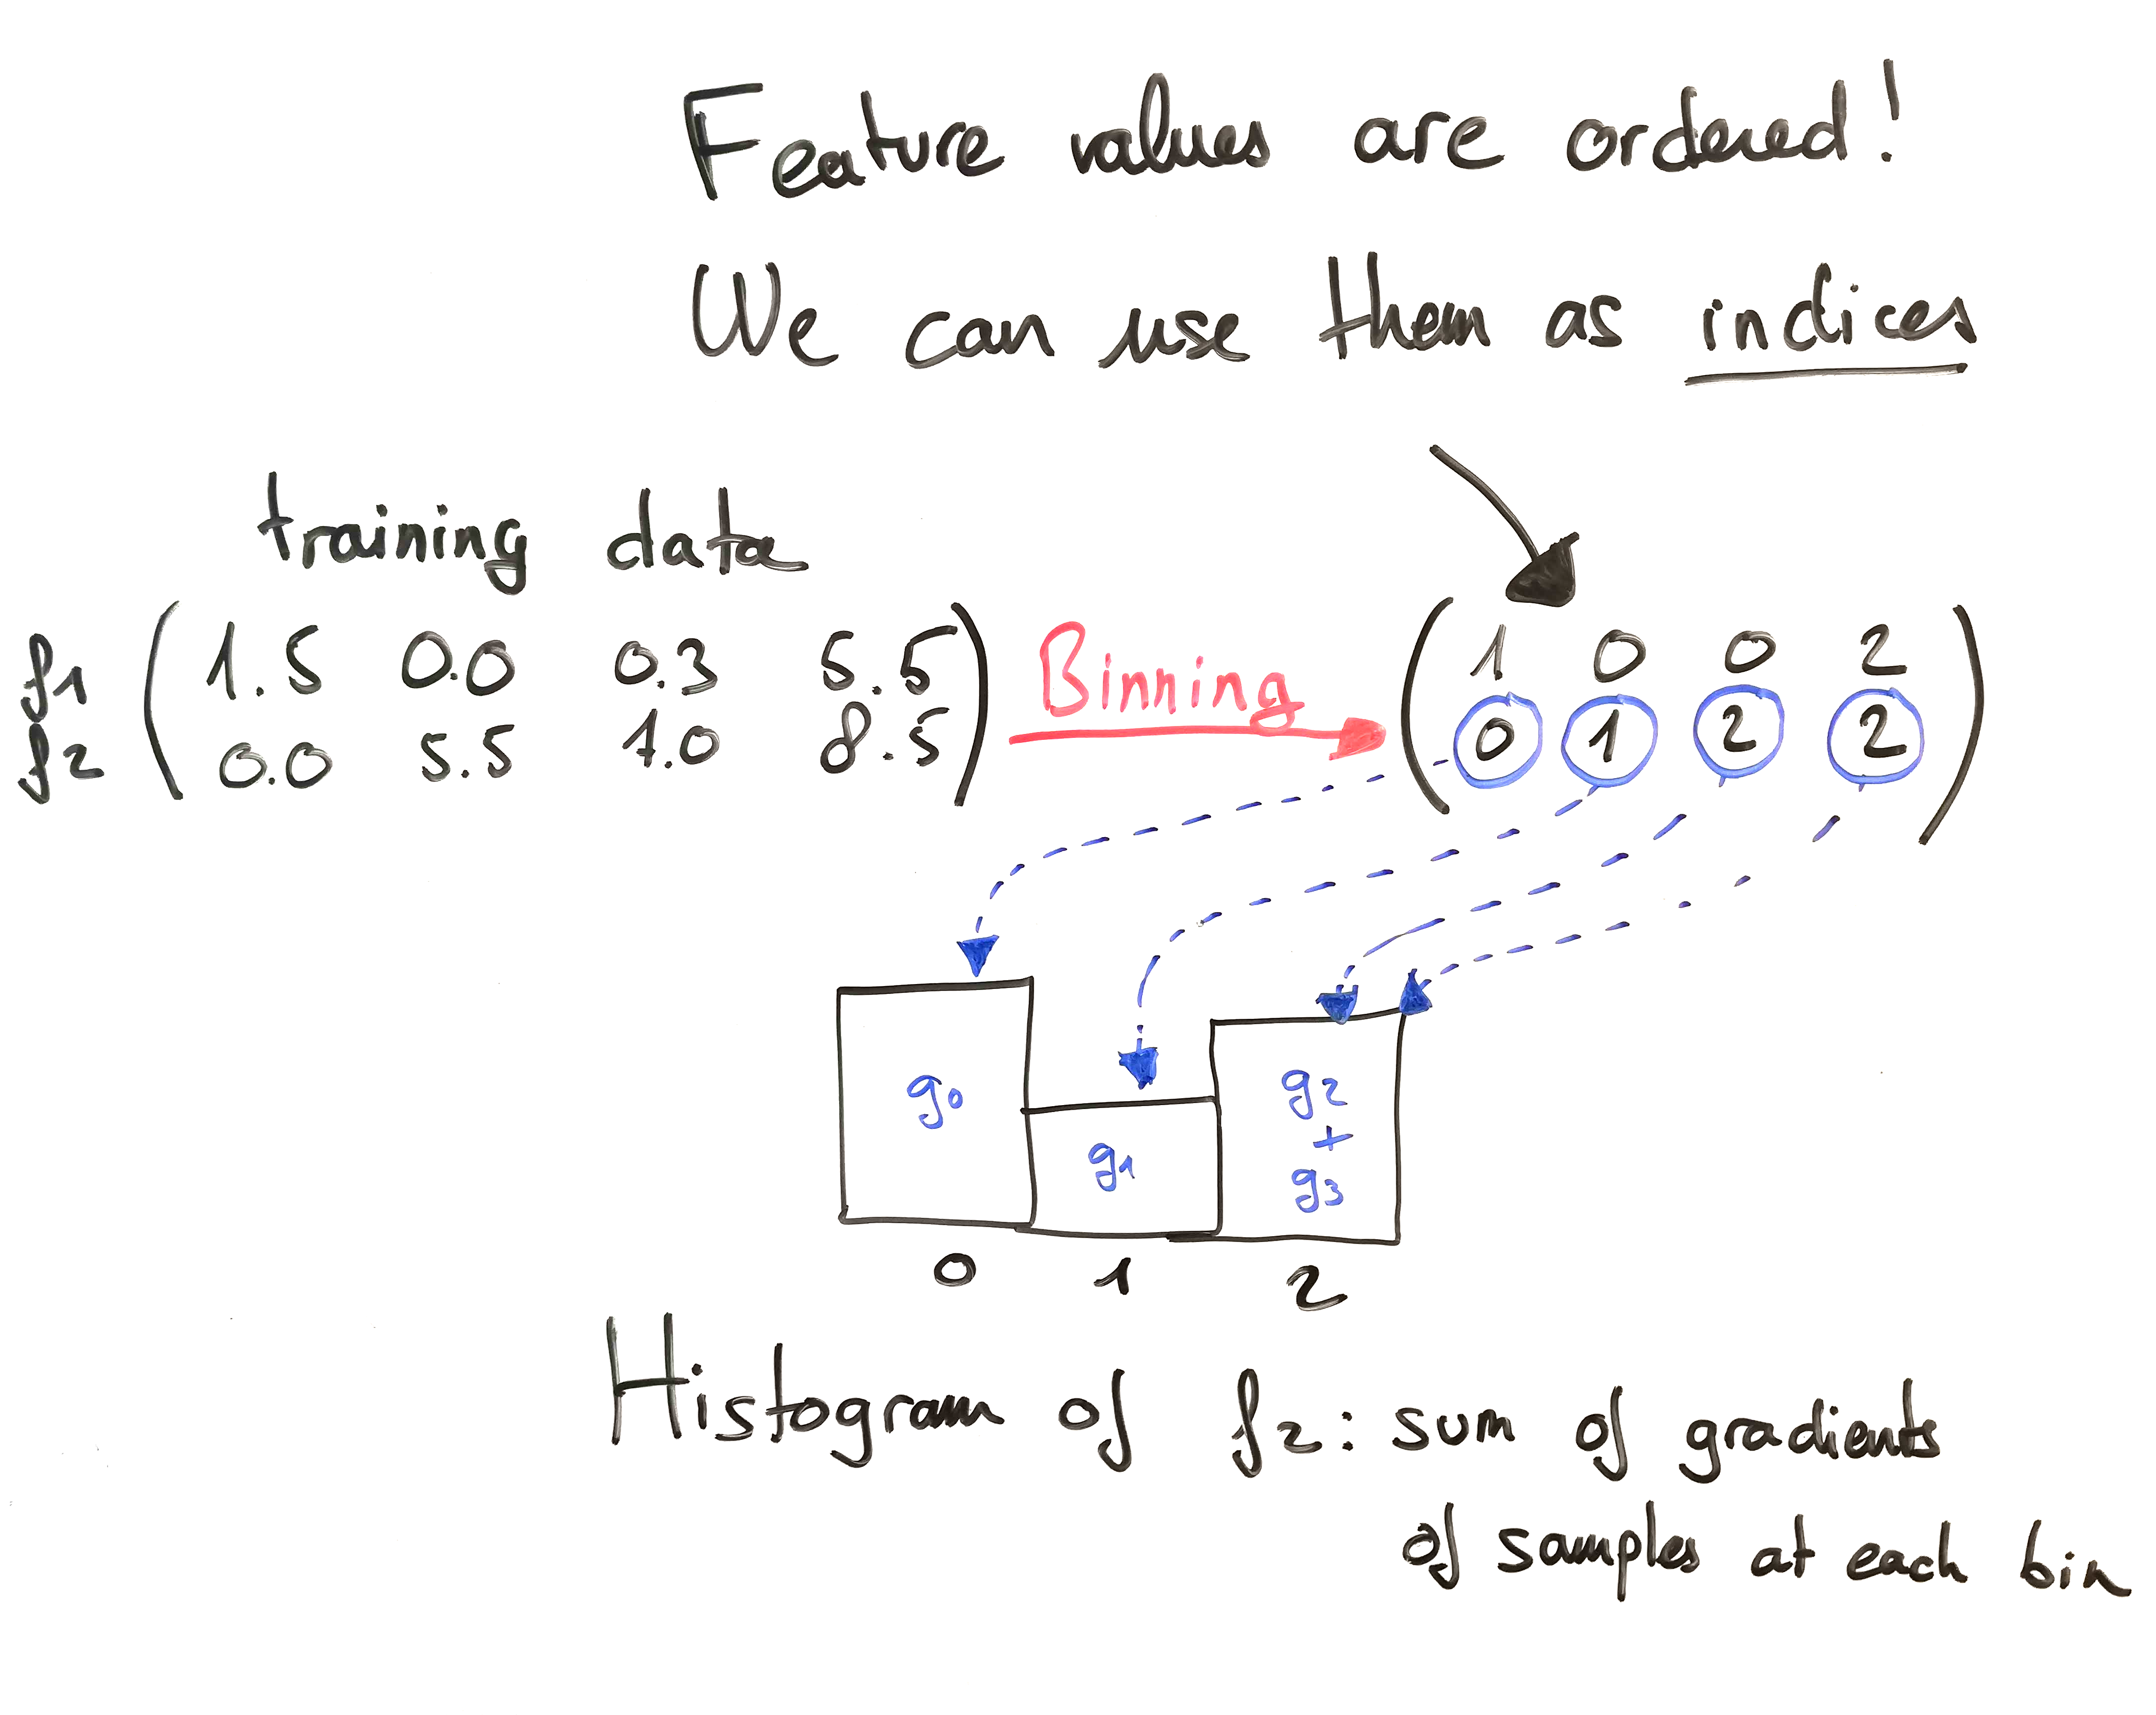 Feature values are ordered!
We can use them as indices
training data
f1 ( 1.5 0.0 0.3 5.5 ) Binning ( 1 0 0 2 )
f2 ( 0.0 5.5 7.0 8.5 ) ( 0 1 2 2 )
g0 g1 g2 + g3
0 1 2
Histogram of f2: sum of gradients
of samples at each bin